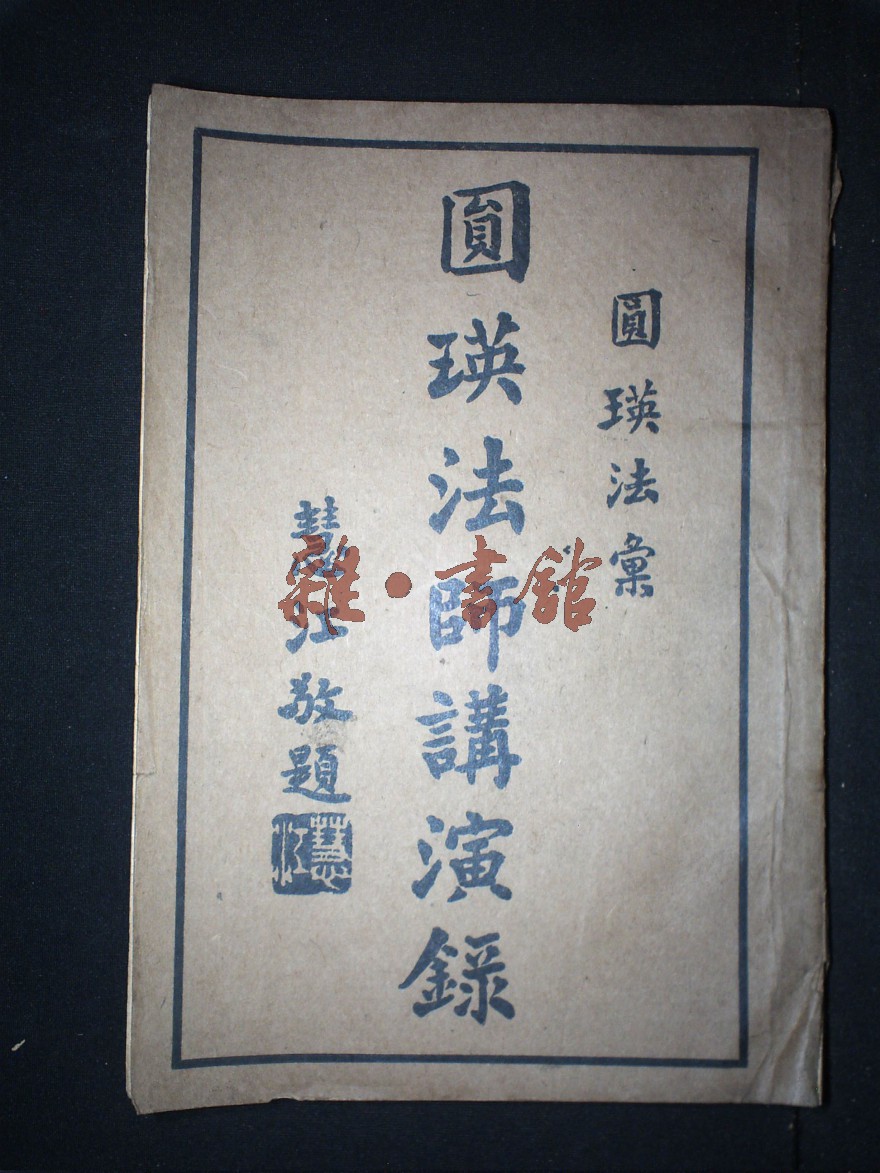 圓瑛法彙
圓瑛法師講演錄
慧江敬題
慧江
雜·書館